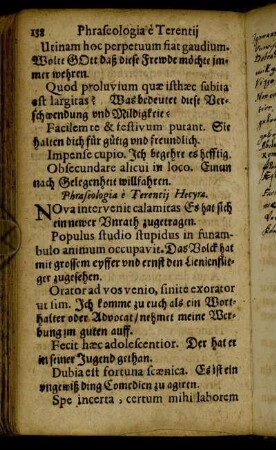 138 Phraseologia è Terentij
Utinam hoc perpetuum fiat gaudium.
Wolte GOtt daß diese Frewde möchte im-
mer wehren.
Quod proluvium quæ isthæc subita
est largitas? Was bedeutet diese Ver-
schwendung vnd Mildigkeit?
Facilem te & festivum putant. Sie
halten dich für gütig vnd freundlich.
Impense cupio. Ich begehre es hefftig.
Obsecundare alicui in loco. Einen
nach Gelegenheit willfahren.
Phraseologia è Terentij Hecyra.
NOva intervenit calamitas Es hat sich
ein newer Vnrath zugetragen.
Populus studio stupidus in funam-
bulo animum occupavit. Das Volck hat
mit grossem eyffer vnd ernst den Lienenflie-
ger zugesehen.
Orator ad vos venio, sinite exorator
ut sim. Ich komme zu euch als ein Wort-
halter oder Advocat/ nehmet meine Wer-
bung im guten auff.
Fecit hæc adolescentior. Der hat er
in seiner Jugend gethan.
Dubia est fortuna scænica. Es ist ein
vngewiß ding Comedien zu agiren.
Spe incerta, certum mihi laborem